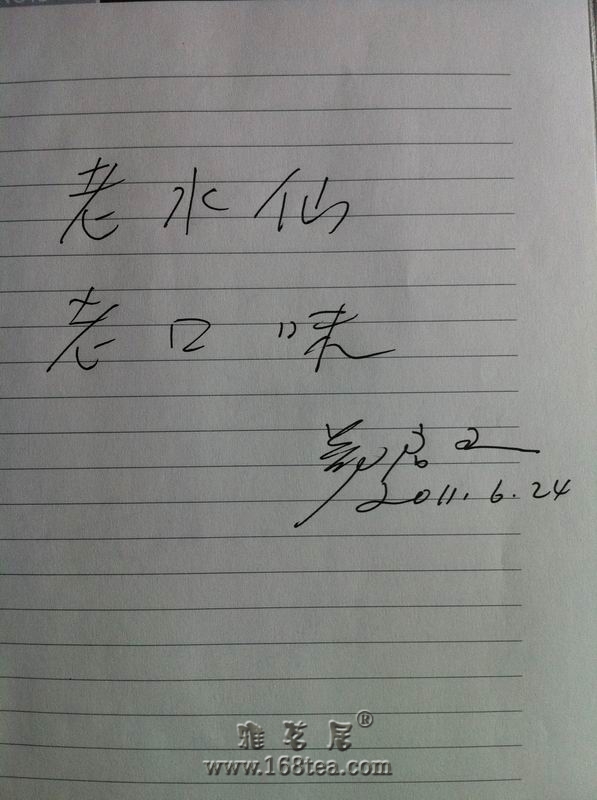 老水仙
老口味
2011.6.24
雅茗居®
www.168tea.com